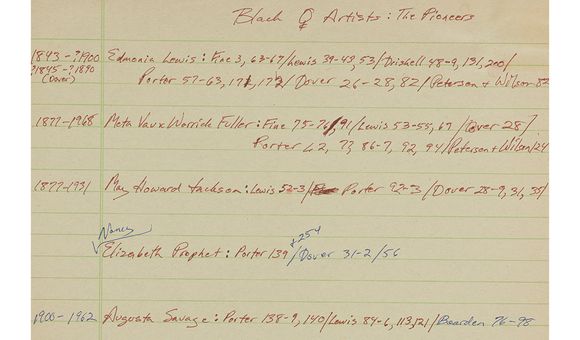 Black ♀ Artists: The Pioneers
1843-?1900 Edmonia Lewis: Fine 3, 63-67/Lewis 39-43, 53/Driskell 48-9, 131, 200/
?1845-?1890 (Dover) Porter 57-63, 171, 172/Dover 26-28, 82/Peterson + Wilson 82
1877-1968 Meta Vaux Warrick Fuller: Fine 75-76, 91/Lewis 53-55, 69/Dover 28/
Porter 62, 77, 86-7, 92, 94/Peterson + Wilson/24
1877-1931 May Howard Jackson: Lewis 52-3/Porter 92-3/Dover 28-9, 31, 35/
Nancy
Elizabeth Prophet: Porter 139 +254/Dover 31-2/56
1900-1962 Augusta Savage: Porter 138-9, 140/Lewis 84-6, 113, 121/Bearden 76-98